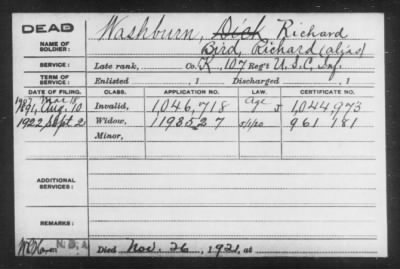 DEAD Washburn, Dick Richard
NAME OF SOLDIER: Bird, Richard (alias)
SERVICE: Late rank, Co. K, 107 Reg't U.S.C. Inf.
TERM OF SERVICE: Enlisted , 1 Discharged , 1
DATE OF FILING. CLASS. APPLICATION NO. LAW. CERTIFICATE NO.
Mar 18
1891, Aug. 10 Invalid, 1,046,718 Age 1,044,973
1922 Sept 2 Widow, 1198527 5/1/20 961 181
Minor,
ADDITIONAL SERVICES:
REMARKS:
N.D.A. Died Nov. 26, 1921, at